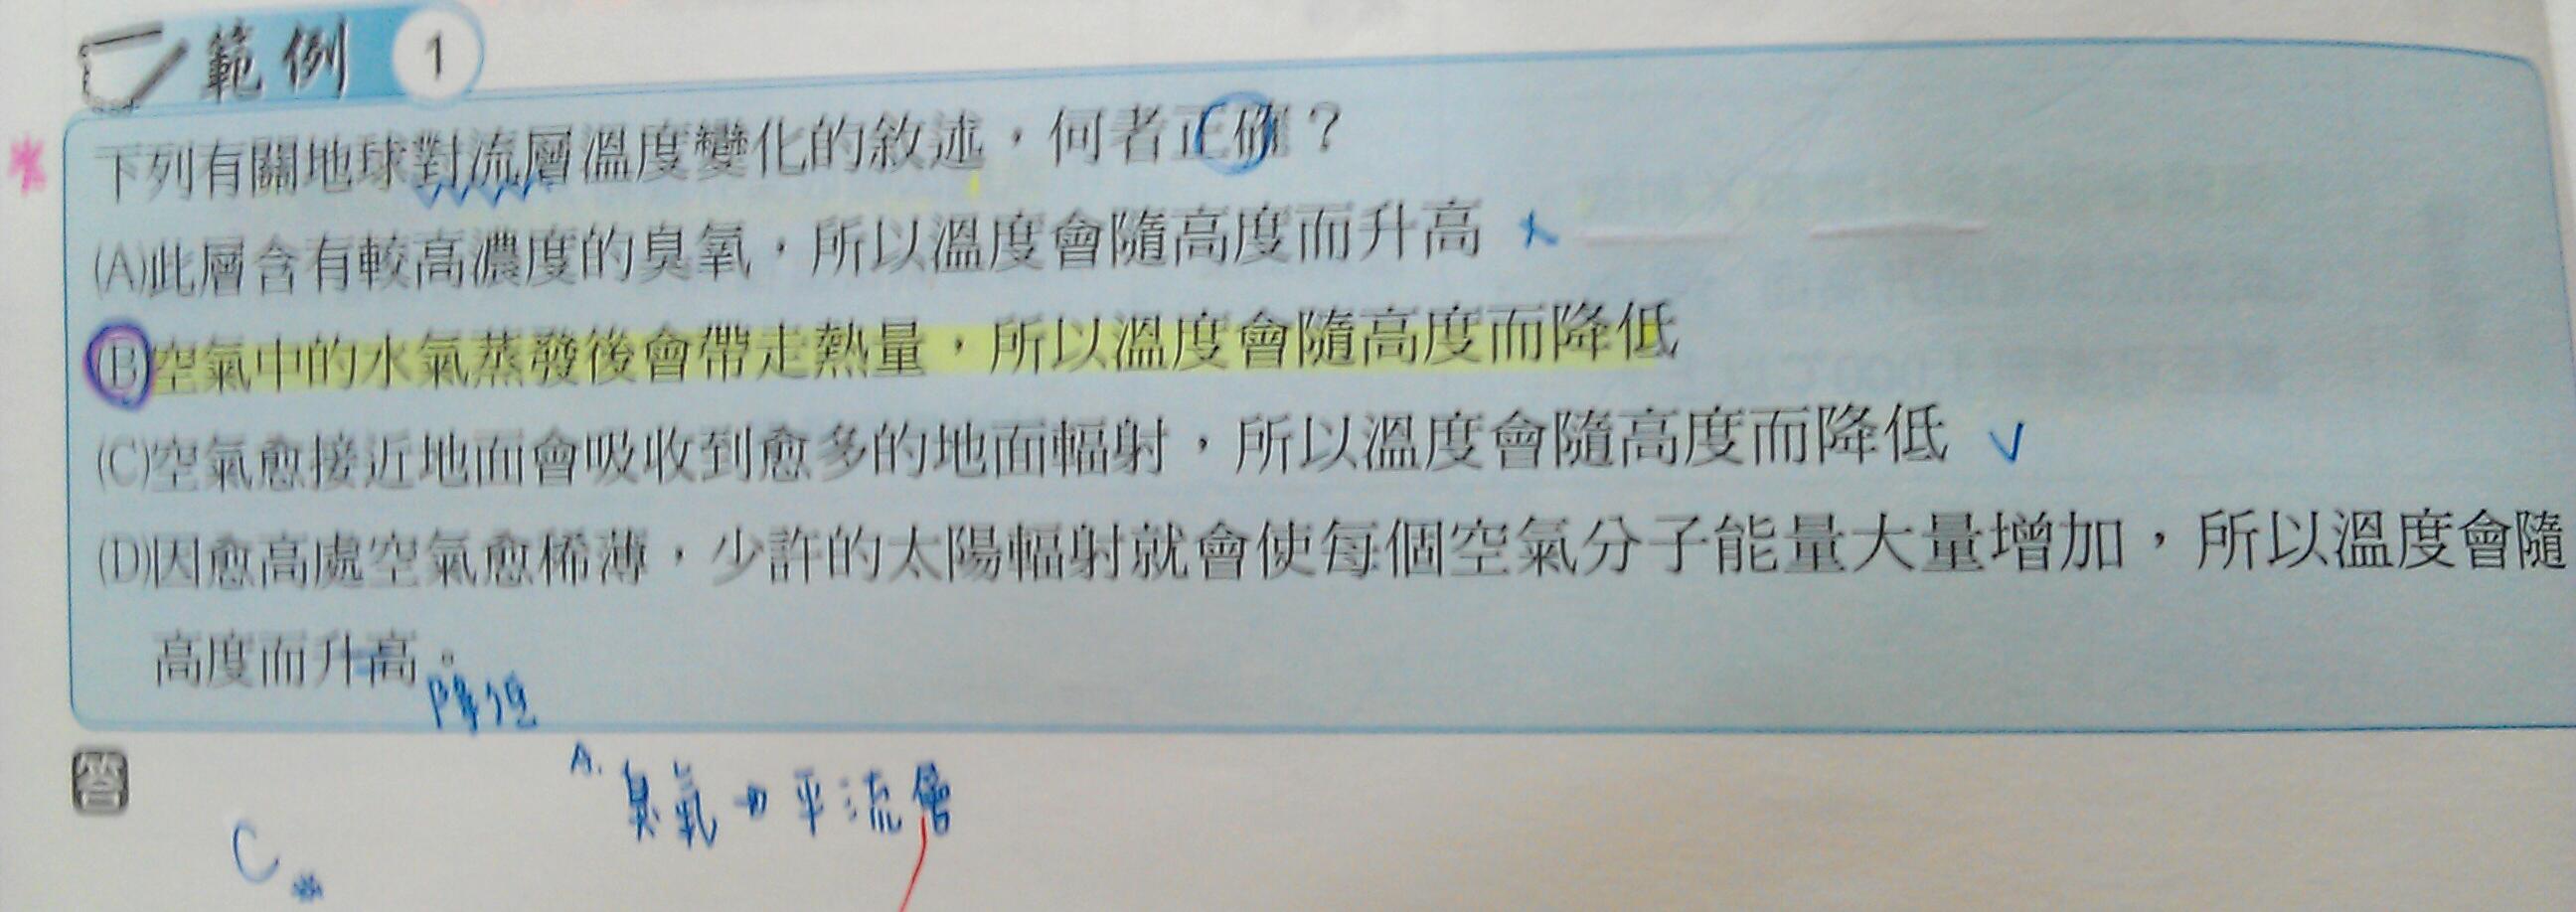 範例 1
下列有關地球對流層溫度變化的敘述，何者正確？
(A)此層含有較高濃度的臭氧，所以溫度會隨高度而升高
(B)空氣中的水氣蒸發後會帶走熱量，所以溫度會隨高度而降低
(C)空氣愈接近地面會吸收到愈多的地面輻射，所以溫度會隨高度而降低 ✓
(D)因愈高處空氣愈稀薄，少許的太陽輻射就會使每個空氣分子能量大量增加，所以溫度會隨
高度而升高。
降低
答
A. 臭氧→平流層
C